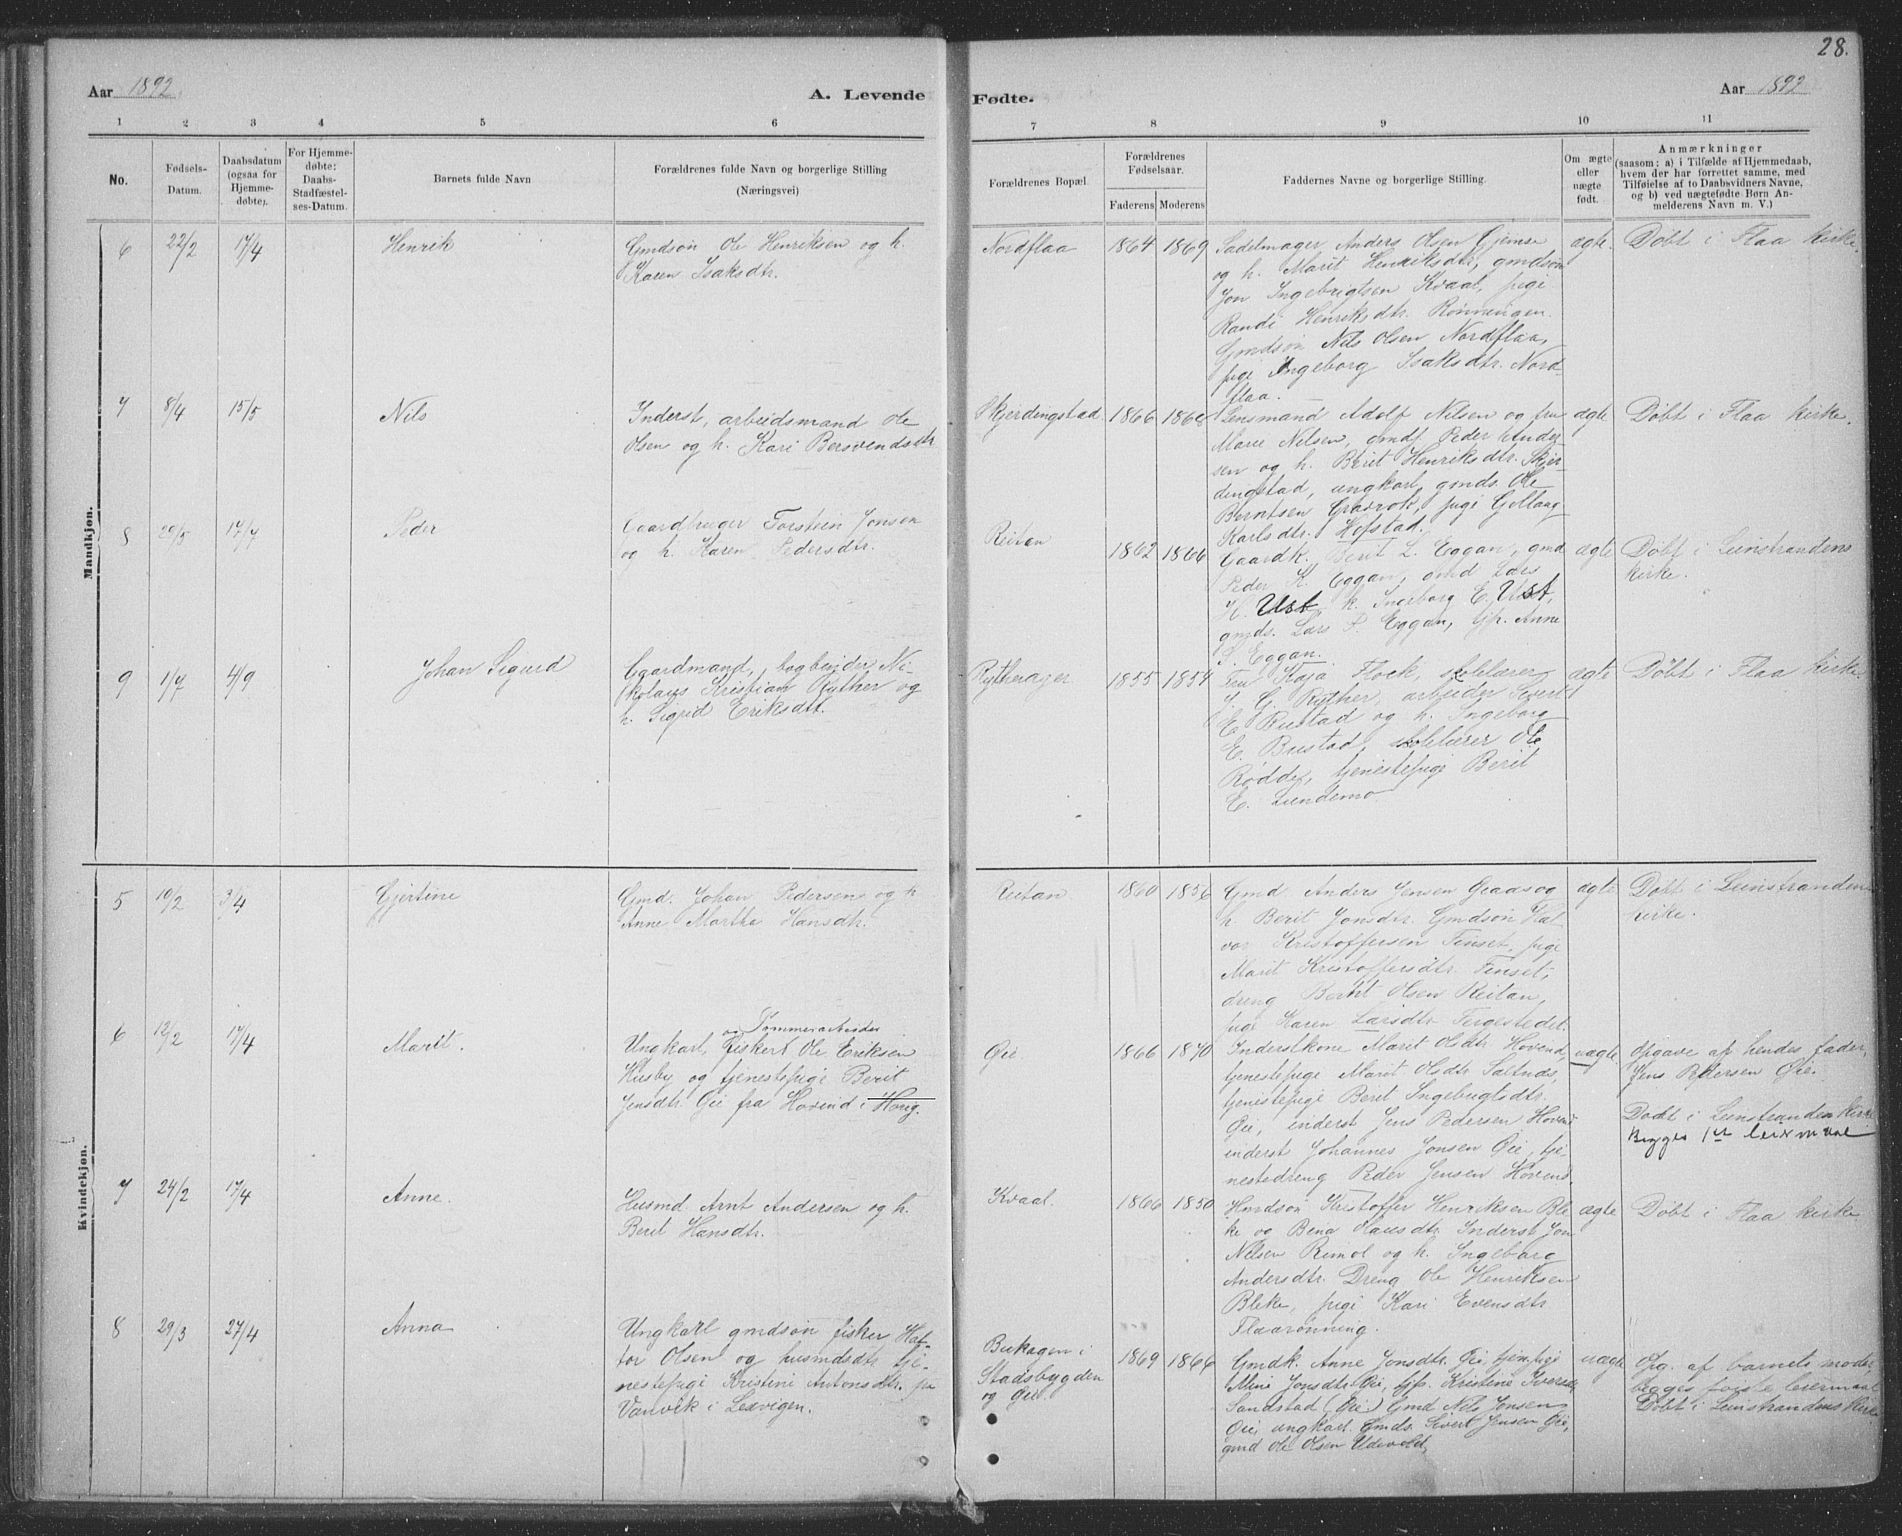 28.
Aar 1892.
A. Levende
Fødte.
Aar 1892
1 2 3 4 5 6
7 8 9 10 11
No.
Fødsels-
Datum.
Daabsdatum
(ogsaa for
Hjemme-
døbte).
For Hjemme-
døbte:
Daabs-
Stadfæstel-
ses-Datum.
Barnets fulde Navn
Forældrenes fulde Navn og borgerlige Stilling
(Næringsvei)
Forældrenes Bopæl.
Forældrenes
Fødselsaar.
Faderens Moderens
Faddernes Navne og borgerlige Stilling.
Om ægte
eller
uægte
født.
Anmærkninger
(saasom: a) i Tilfælde af Hjemmedaab,
hvem der har forrettet samme, med
Tilføielse af to Daabsvidners Navne,
og b) ved uægtefødte Børn An-
melderens Navn m. V.)
Mandkjøn.
6 22/2 17/4 Henrik
Gmdsøn Ole Henriksen og h.
Karen Isaksdtr.
Nordflaa 1864 1869
Sadelmager Anders Olsen Gjemse
og h. Marit Henriksdtr, gmdsøn
Jon Ingebrigtsen Kvaal, pige
Randi Henriksdtr. Rønningen.
Gmdsøn Nils Olsen Nordflaa,
pige Ingeborg Isaksdtr. Nord-
flaa.
ægte. Døbt i Flaa kirke.
7 8/4 15/5 Nils
Inderst, arbeidsmand Ole
Olsen og h. Kari Bersvendsdtr
Skjerdingstad 1866 1868
Lensmand Adolf Nilsen og fru
Marie Nilsen, gmdf Peder Ander
sen og h. Berit Henriksdtr. Skjer-
dingstad, ungkarl gmds. Ole
Berntsen Gravrok, pige Gollaug
Karlsdtr. Hofstad.
ægte Døbt i Flaa kirke.
8 29/5 17/7 Peder
Gaardbruger Torstein Jonsen
og h. Karen Pedersdtr.
Reitan 1862 1866
Gaardk. Berit L. Eggan, gmd
Peder K. Eggan, gmd Lars
H. Ust, k. Ingeborg E. Ust,
gmds. Lars P. Eggan, tjp. Anne
P. Eggan.
ægte Døbt i Leinstrandens
kirke.
9 1/7 4/9 Johan Sigurd
Gaardmand, bogbinder Ni-
kolaus Kristian Ryther og
h. Sigrid Eriksdtr.
Rytherager 1855 1854
Fru Kaja Flock, skolelærer
J. G. Ryther, arbeider Sivert
E. Bustad og h. Ingeborg
E. Bustad, skolelærer Ole
Rødde, tjenestepige Berit
E. Lundemo
ægte Døbt i Flaa kirke
Kvindekjøn.
5 19/2 3/4 Gjertine
Gmd. Johan Pedersen og h
Anne Martha Hansdtr.
Reitan 1860 1856
Gmd Anders Jensen Graas og
h Berit Jonsdtr. Gmdsøn Hal
vor Kristoffersen Tinset, pige
Marit Kristoffersdtr. Tinset,
dreng Bernt Olsen Reitan,
pige Karen Larsdtr Teigestedet
ægte Døbt i Leinstranden
kirke.
6 12/2 17/4 Marit.
og Tømmerarbeider
Ungkarl, fisker Ole Eriksen
Husby og tjenestepige Berit
Jensdtr. Øie fra Hovend i Horig.
Øie. 1866 1870
Inderstkone Marit Olsdtr Hovend,
tjenestepige Marit Olsdtr Saltnes,
tjenestepige Berit Ingebrigtsdtr.
Øie, inderst Jens Pedersen Hovend
inderst Johannes Jonsen Øie, tje-
nestedreng Peder Jensen Hovend.
uægte Opgave af hendes fader,
Jens Pedersen Øie.
Døbt i Leinstranden kirke
Begges 1st leiermaal
7 24/2 17/4 Anne.
Husmd. Arnt Andersen og h.
Berit Hansdtr.
Kvaal. 1866 1850
Hmdsøn Kristoffer Henriksen Ble
ke og Bena Hansdtr Inderst Jon
Nilsen Rimol og h. Ingeborg
Andersdtr. Dreng Ole Henriksen
Bleke, pige Kari Evensdtr
Flaarønning.
ægte Døbt i Flaa kirke
8 29/3 27/4 Anna
Ungkarl gmdsøn fisker Haf-
tor Olsen og husmdsdtr tje-
nestepige Kristine Antonsdtr. fra
Vanvik i Leksvigen.
Bukagen i
Stadsbygden
og Øie. 1869 1866
Gmdk. Anne Jonsdtr. Øie, tjen.pige
Mine Jonsdtr. Øie, tjp. Kristine Iversdtr
Sandstad (Øie.) Gmd Nils Jensen
Øie, ungkarl Gmds. Sivert Jensen Øie,
gmd Ole Olsen Udevold,
uægte Opg. af barnets moder,
begges første leiermaal
Døbt i Leinstrandens kirke